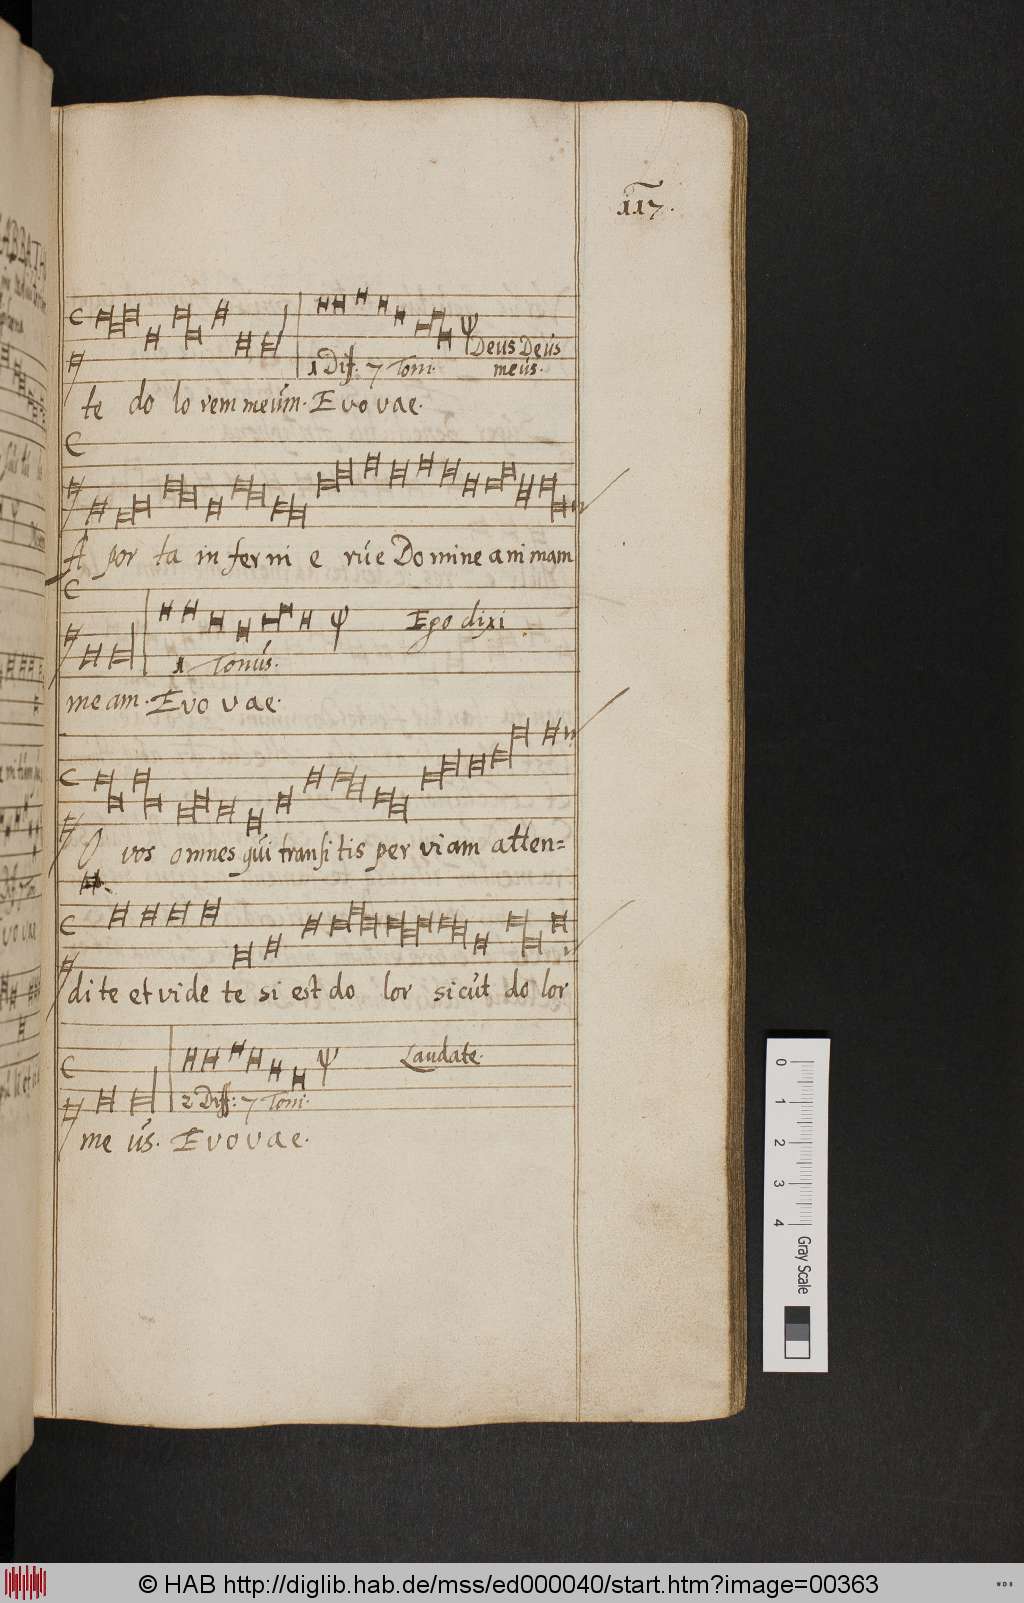 117.
1 Diff. 7 Toni.
Deus Deus
meus.
te do lo rem meum. Evovae.
A por ta in fer ni e rue Do mine ani mam
1 Tonus.
Ego dixi
me am. Evo vae.
O vos omnes qui transi tis per vi am atten=
di te et vide te si est do lor sicut do lor
2 Diff: 7 Toni.
Laudate.
me us. Evovae.
0 1 2 3 4
Gray Scale
© HAB http://diglib.hab.de/mss/ed000040/start.htm?image=00363